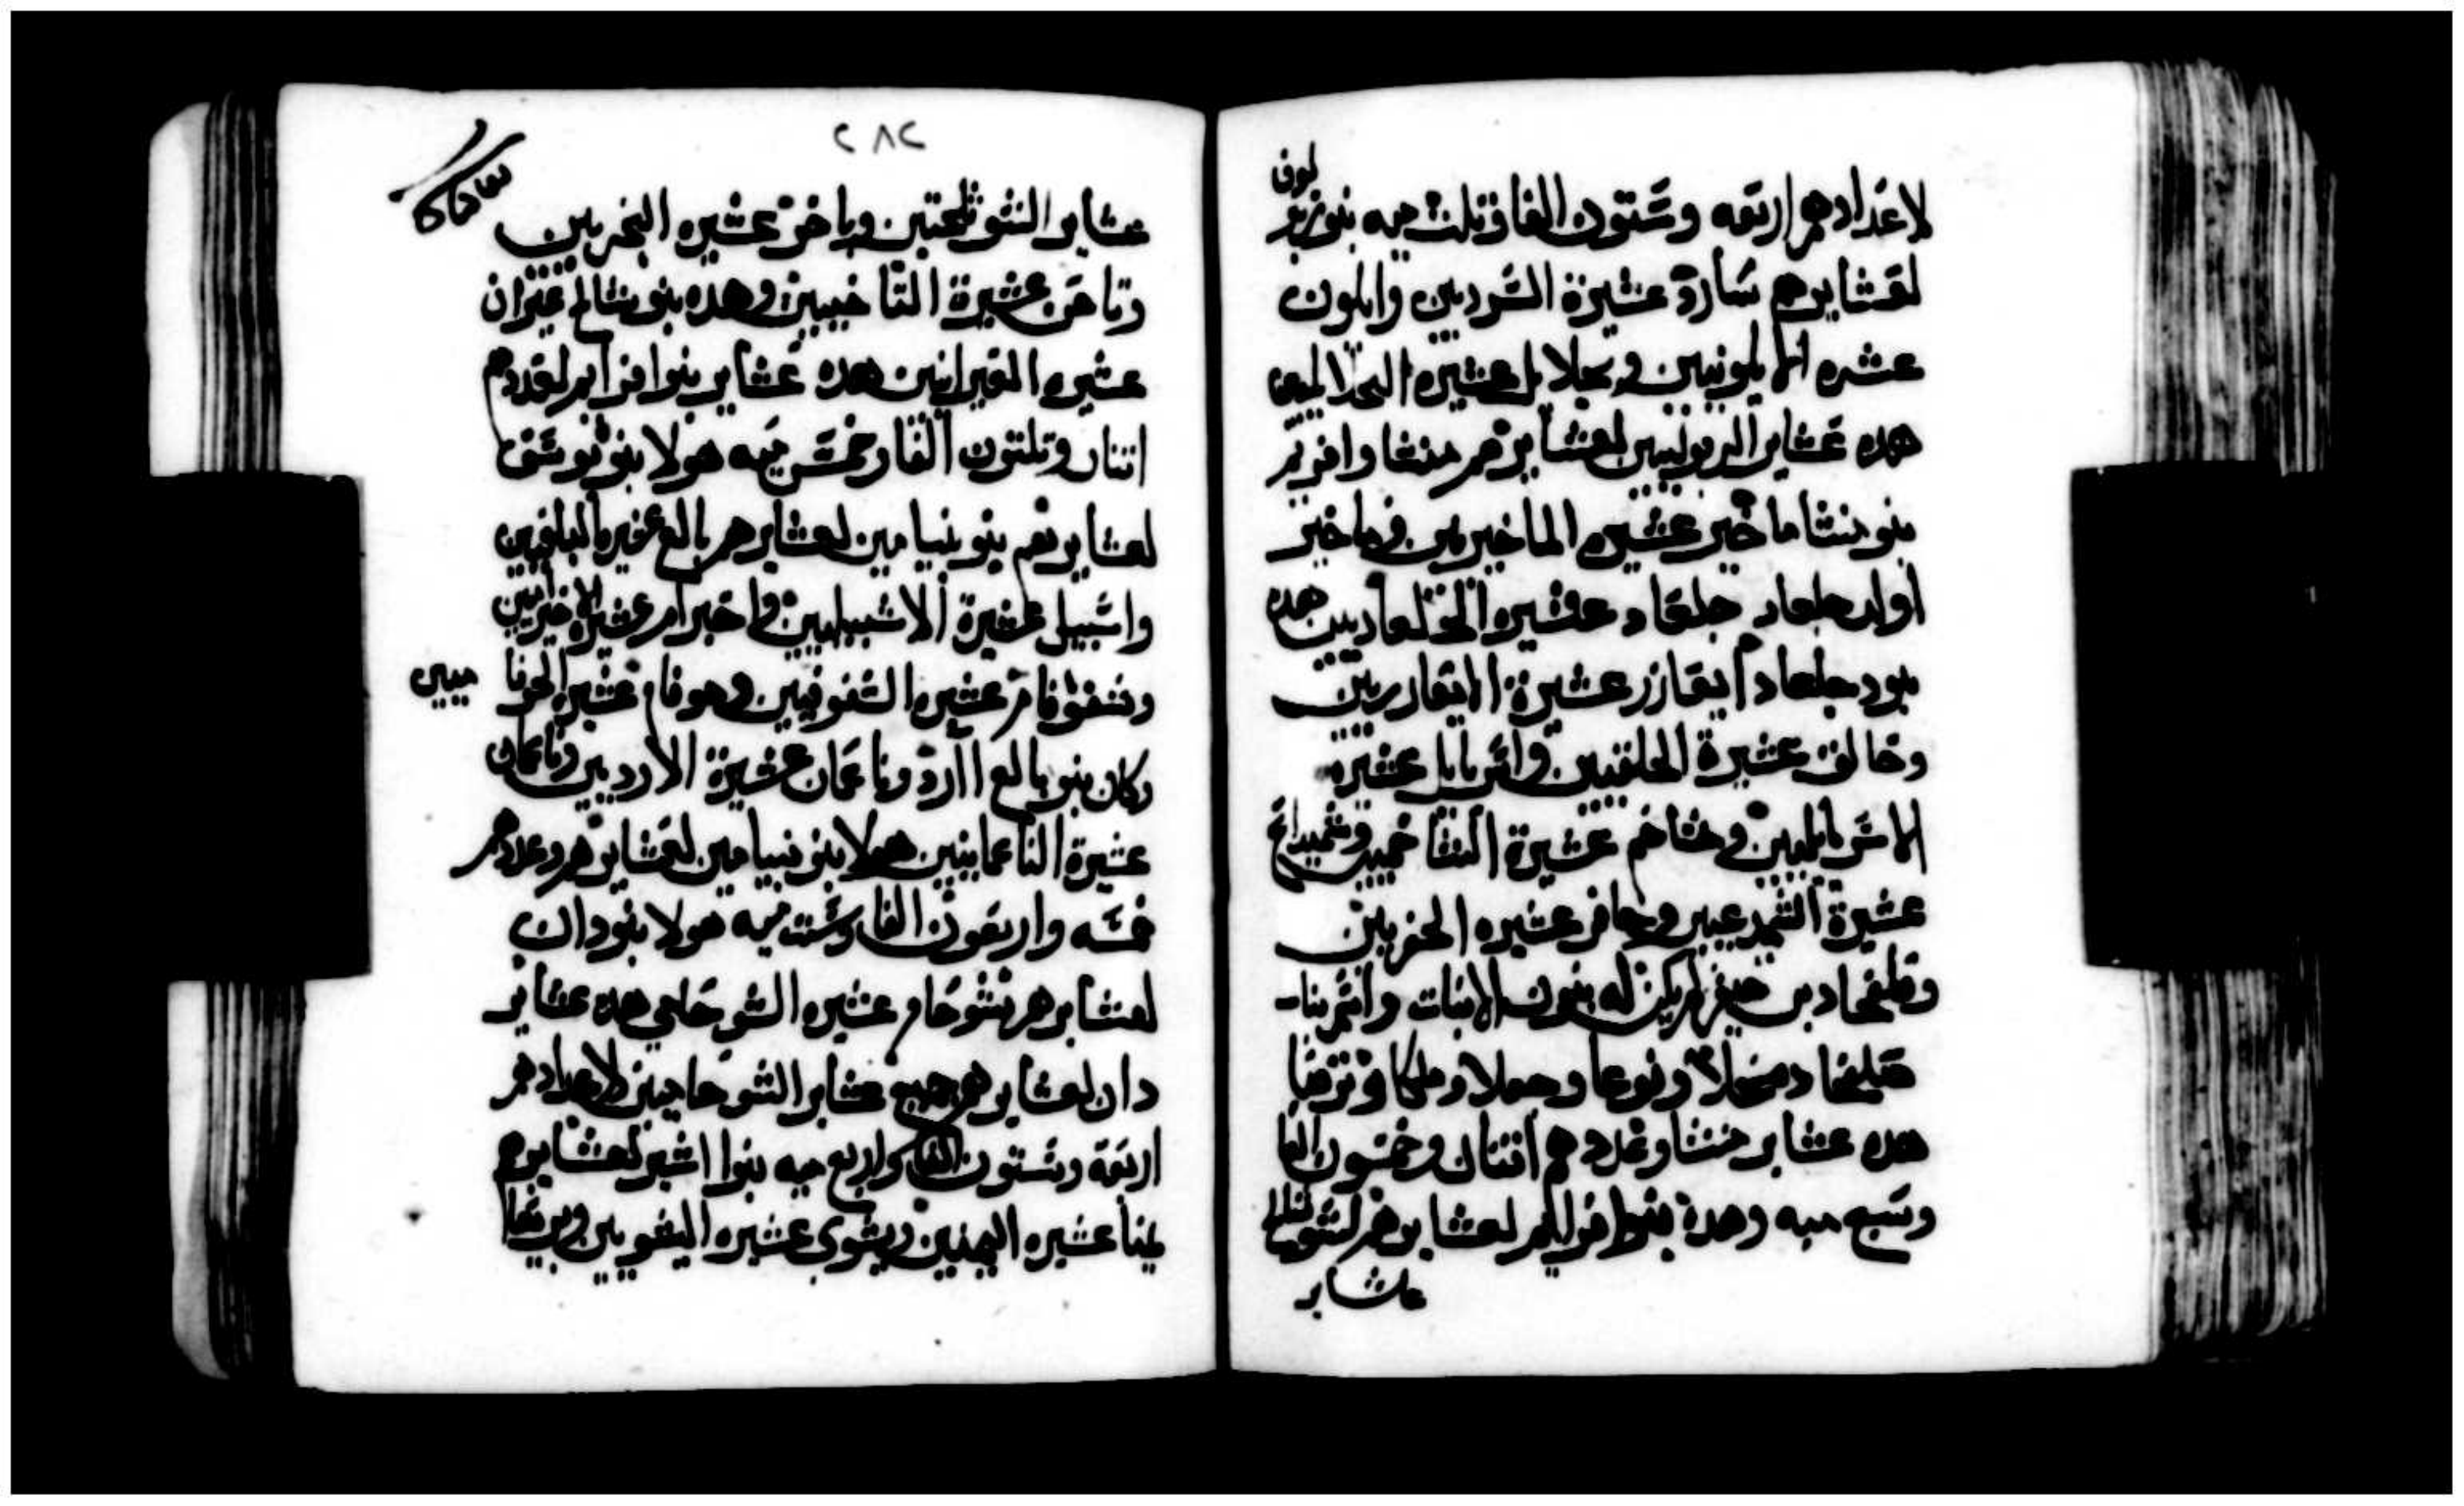 لاعدادهم اربعه وستون الفا وثلث ميه بنو زبو
لون
لعشايرهم سارد عشيرة السرديين وايلون
عشره الايلونيين وبحلايل عشيره البحلايليين
هده عشاير الزبولنيين لعشايرهم منشا وافريم
بنو منشا ماخير عشيره الماخيريين وماخير
اولد جلعاد جلعاد عشيره الجلعاديين هده
بنو جلعاد ايعازر عشيرة الايعازريين
وخالق عشيرة الخلقيين واشريايل عشيره
الاشريايليين وشاخم عشيرة الشاخميين وشميداع
عشيرة الشميدعيين وحافر عشيره الحفريين
وصلفحاد بن حيفر لم يكن له بنون الا بنات واسم بنات
صلفحاد محلا ونوعا وحجلا وملكا وترصا
هده عشاير منشا وعددهم اتنان وخمسون الفا
وسبع ميه وهده بنوا افرايم لعشايرهم لشوتالح
عشاير
٢٨٢
عشاير الشوتلحيين وباخر عشيره البخريين
وتاحن عشيرة التاحنيين وهده بنو شتالح عيران
عشيره العيرانيين هده عشاير بنوا افرايم لعددهم
اتنان وتلتون الفا وخمس ميه هولا بنو يوسف
لعشايرهم بنو بنيامين لعشايرهم بالع عشيره البالعيين
واشبيل عشيرة الاشبيليين واخيرام عشيره الاخيراميين
وشفوفام عشيره الشفوفميين وحوفام عشيره الحوفا
ميين
وكان بنو بالع اارد وناعمان عشيرة الارديين وناعمان
عشيرة الناعمانيين هولا بنو بنيامين لعشايرهم وعددهم
خمسه واربعون الفا وست ميه هولا بنو دان
لعشايرهم شوحام عشيره الشوحامي هده عشاير
دان لعشايرهم جميع عشاير الشوحاميين لاعدادهم
اربعة وستون الفا واربع ميه بنوا اشير لعشايرهم
يمنا عشيره اليمنيين ويشوى عشيره اليشويين وبريعا